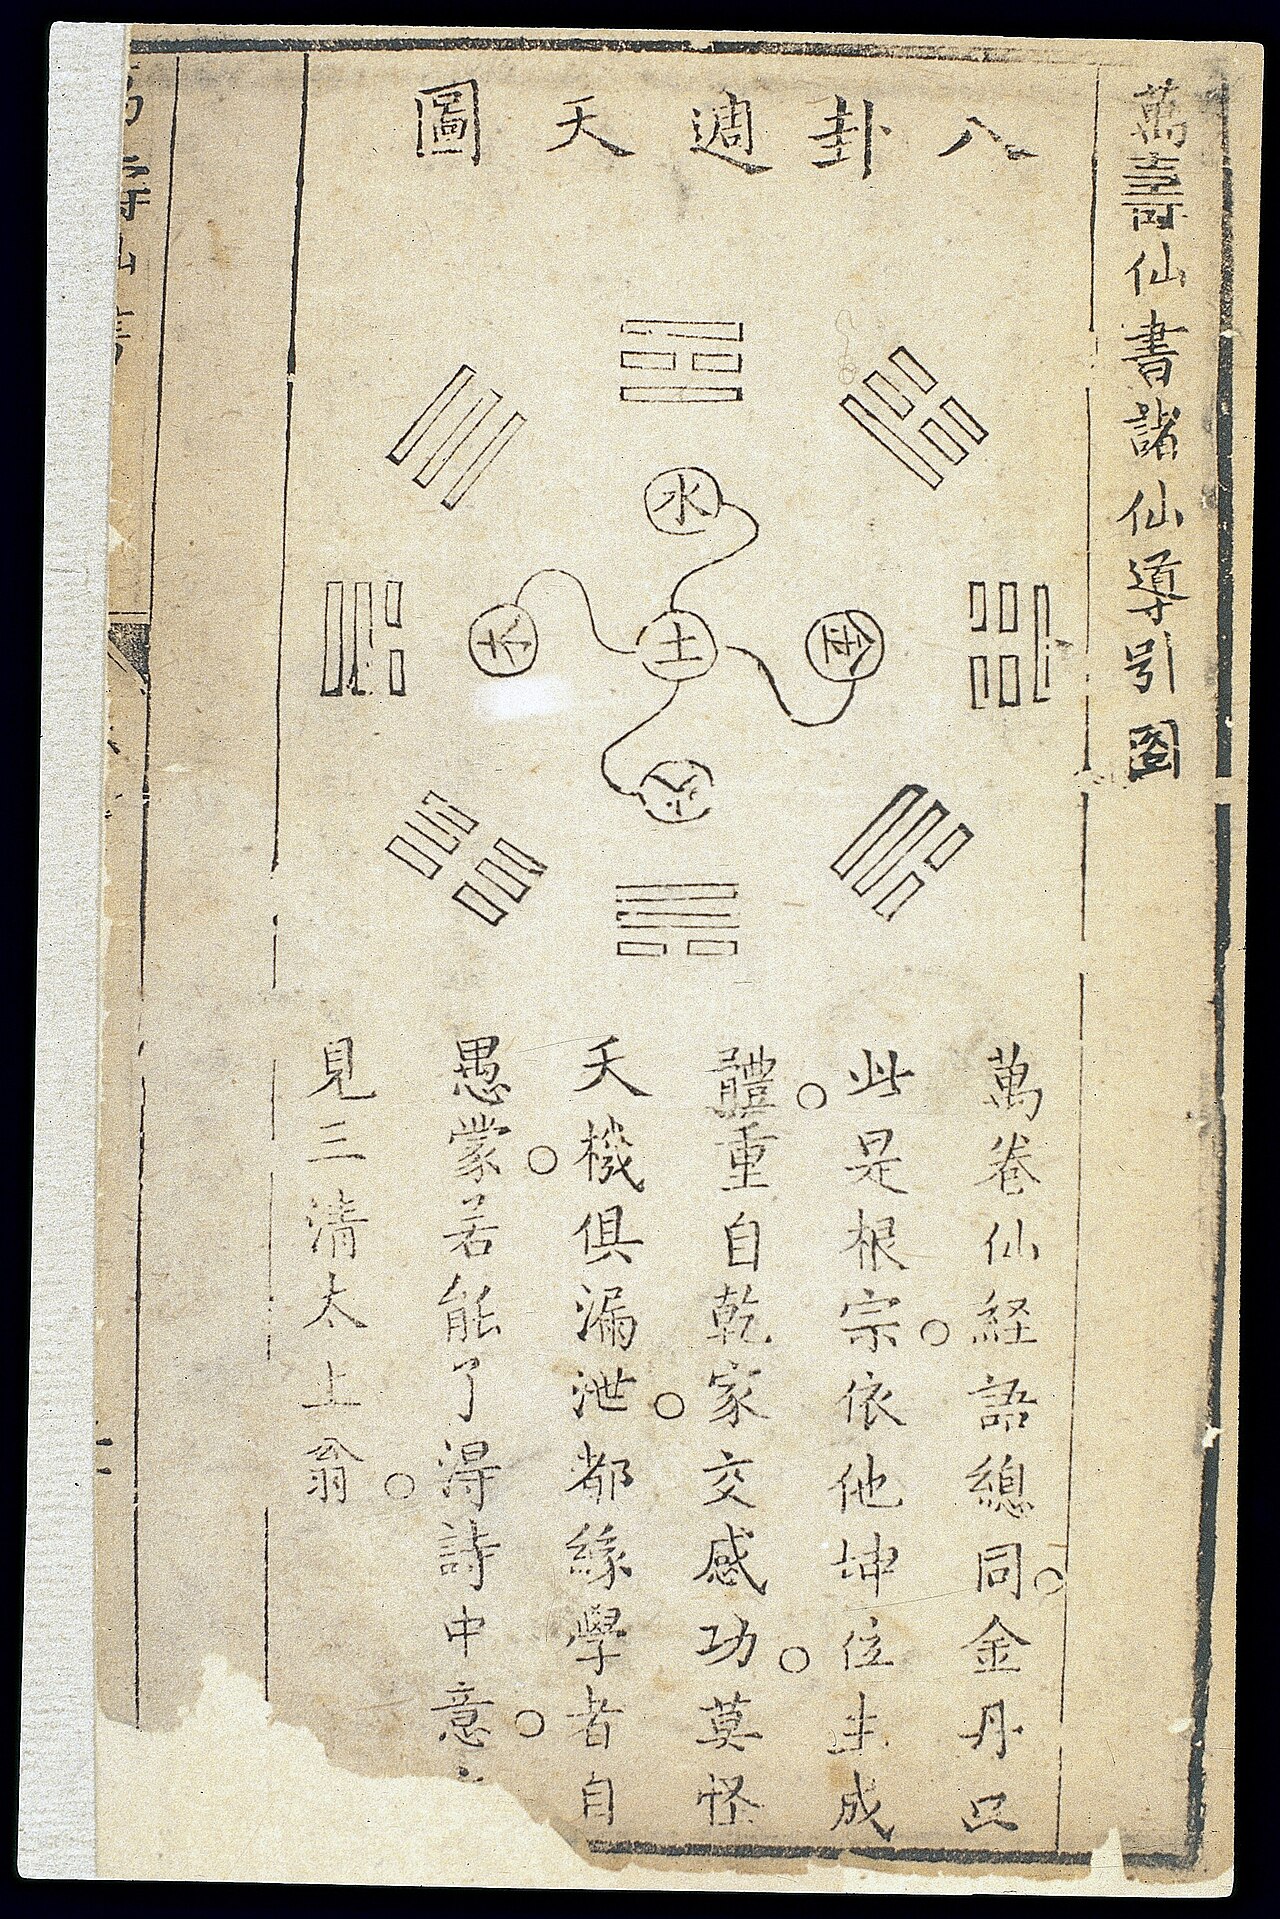 萬壽仙書諸仙導引圖
八卦週天圖
水
木 土 金
火
萬卷仙経語總同○金丹只
此是根宗○依他坤位生成
體○重自乾家交感功○莫怪
天機俱漏泄○都緣學者自
愚蒙○若能了淂詩中意○
見三清太上翁○